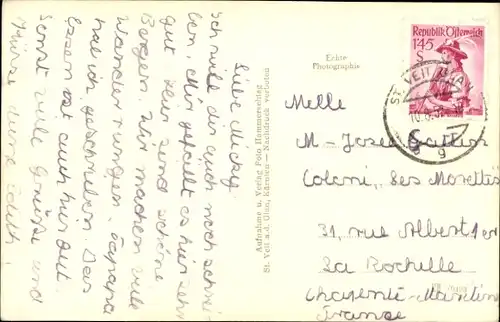 Liebe Micky.
Ich wollte dir auch noch schrei-
ben. Mir gefällt es hier sehr
gut. Hier sind schöne
Bergen. Wir machen viele
Wanderungen. Papapa
hat ich geschrieben. Das
Essen ist auch hier gut.
Sonst viele Grüße und
Küsse deine Edith.
Echte
Photographie
Aufnahme u. Verlag Foto Hammerschlag
St. Veit a.d. Glan, Kärnten — Nachdruck verboten
Republik Österreich
1'45
S
ST. VEIT / GLAN
10.
Melle
M-Josee
Colani, Les Morettes
31, rue Albert 1er
La Rochelle
Charente-Maritime
France